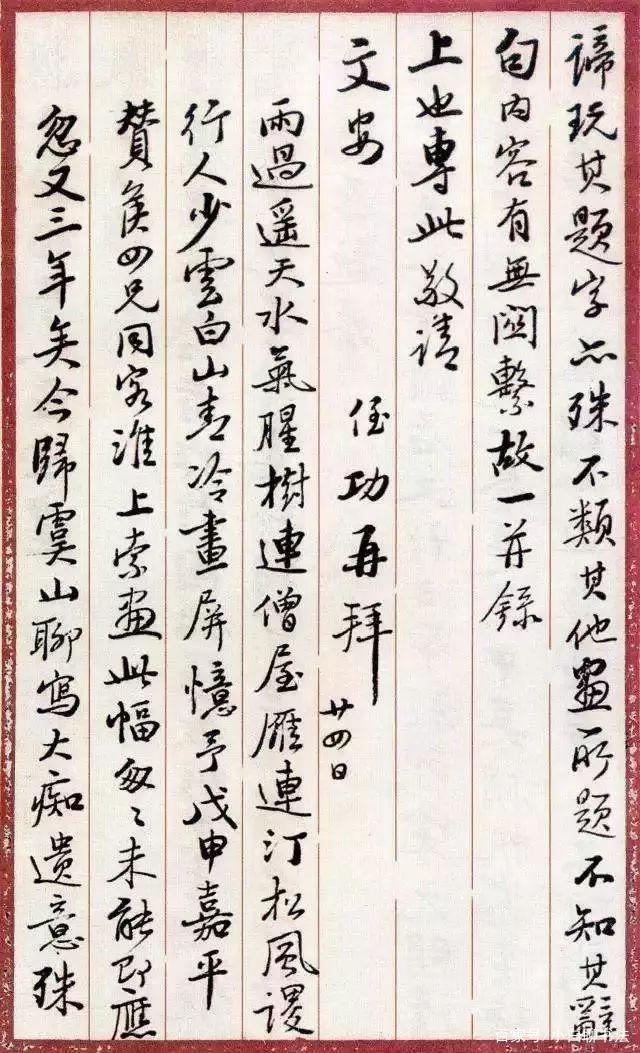 諦玩其題字亦殊不類其他畫所題不知其辭
句內容有無關繫故一并錄
上也專此敬請
文安
侄功再拜
廿四日
雨過遥天水氣腥樹連僧屋雁連汀松風謖
行人少雲白山青冷畫屏憶予戊申嘉平
贊侯四兄同客淮上索畫此幅匆〻未能即應
忽又三年矣今歸虞山聊寫大痴遺意殊
百家号